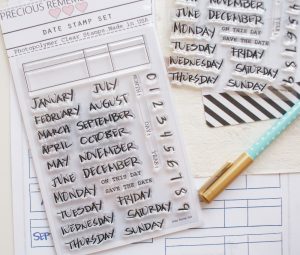 PRECIOUS REMEMB
DATE STAMP SET
Photopolymer Clear Stamps-Made in USA
JANUARY JULY
FEBRUARY AUGUST
MARCH SEPTEMBER
APRIL OCTOBER
MAY NOVEMBER
JUNE DECEMBER
MONDAY ON THIS DAY
SAVE THE DATE
TUESDAY FRIDAY
WEDNESDAY SATURDAY
THURSDAY SUNDAY
0
1
2
3
4
5
6
7
8
9
MAY NOVEMBER
JUNE DECEMBER
MONDAY ON THIS DAY
SAVE THE DATE
TUESDAY FRIDAY
WEDNESDAY SATURDAY
THURSDAY SUNDAY
SEP